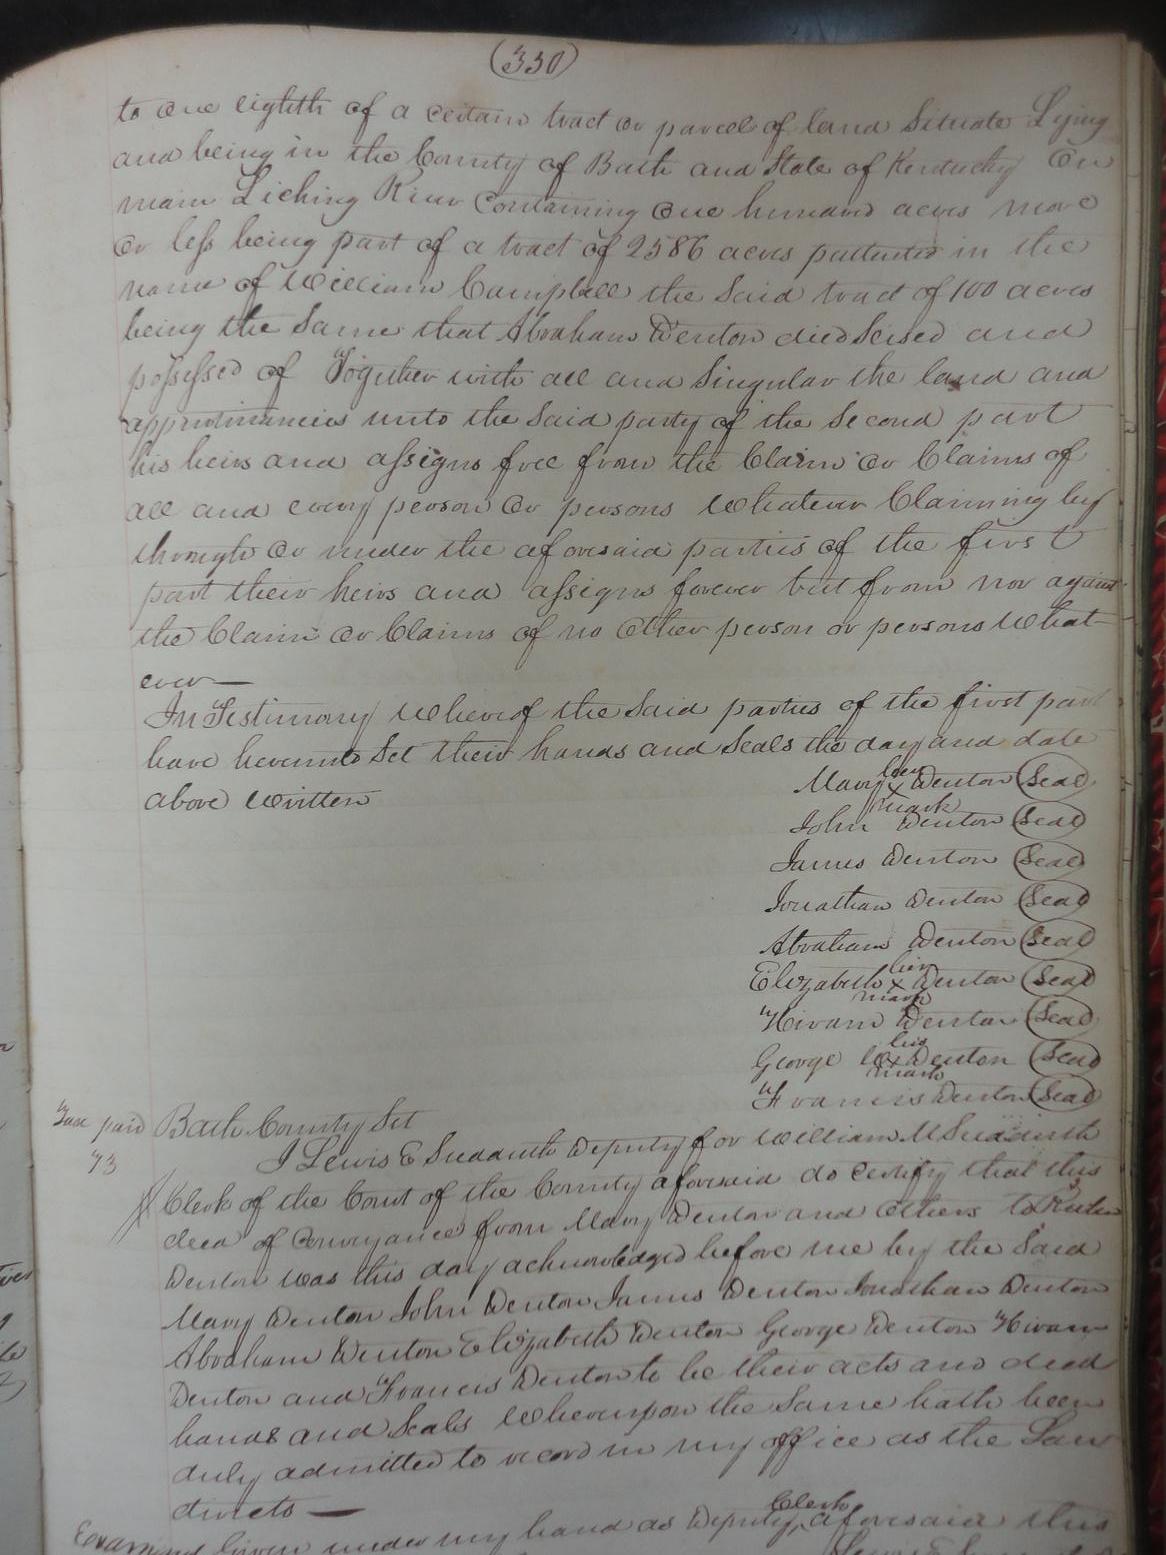 (330)
to one eighth of a certain tract or parcel of land Situate Lying
and being in the County of Bath and State of Kentucky On
main Licking River Containing One hundred acres more
Or less being part of a tract of 2586 acres pattented in the
name of William Campbell the Said tract of 100 acres
being the Same that Abraham Denton died Seised and
possessed of Together with all and Singular the land and
appurtinancies unto the Said party of the Second part
his heirs and assigns free from the Claim or Claims of
all and every person Or persons Whatever Claiming by
through Or under the aforesaid parties of the first
part their heirs and assigns forever but from nor against
the Claim Or Claims of no Other person or persons What
ever —
In Testimony Whereof the Said parties of the first part
have hereunto Set their hands and Seals the day and date
above Written
Mary her x mark Denton (Seal)
John Denton (Seal)
James Denton (Seal)
Jonathan Denton (Seal)
Abraham Denton (Seal)
Elizabeth her x mark Denton (Seal)
Hiram Denton (Seal)
George his x mark Denton (Seal)
Francis Denton (Seal)
Tax paid Bath County Sct
73 I Lewis E Sudduth Deputy for William M Sudduth
Clerk of the Court of the County aforesaid do certify that this
deed of Conveyance from Mary Denton and Others to
Denton was this day acknowledged before me by the Said
Mary Denton John Denton James Denton Jonathan Denton
Abraham Denton Elizabeth Denton George Denton Hiram
Denton and Francis Denton to be their acts and deed
hands and Seals Whereupon the Same hath been
duly admitted to record in my office as the Law
directs —
Given under my hand as Deputy Clerk aforesaid this